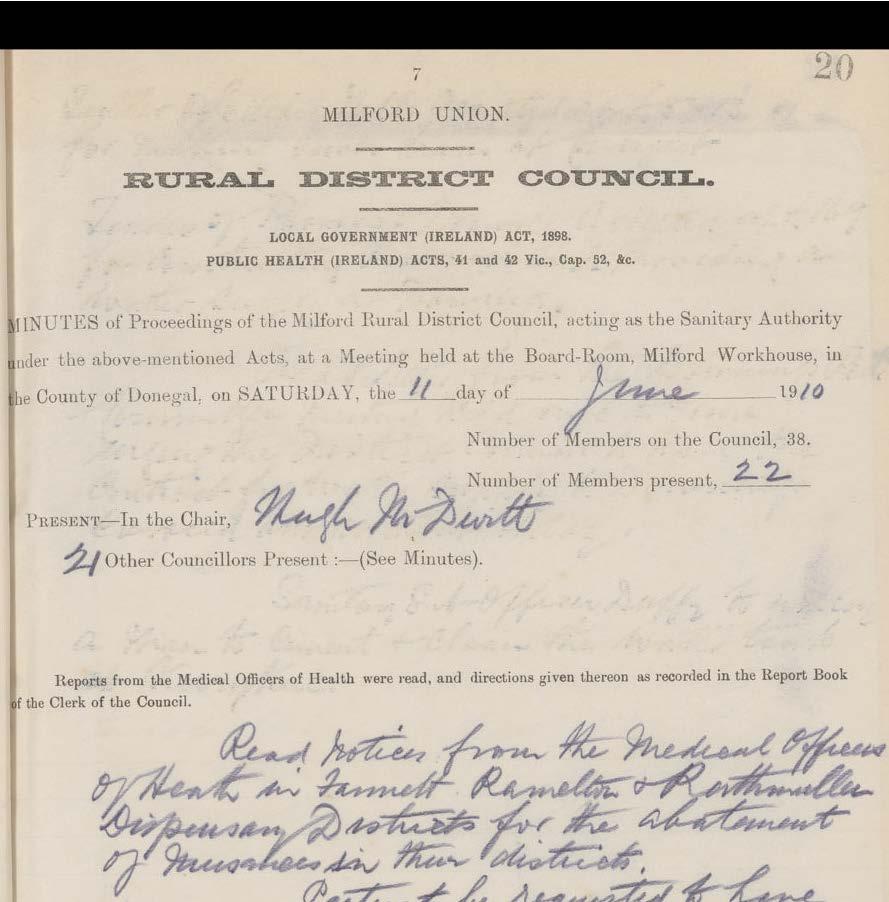 20
7
MILFORD UNION.
RURAL DISTRICT COUNCIL.
LOCAL GOVERNMENT (IRELAND) ACT, 1898.
PUBLIC HEALTH (IRELAND) ACTS, 41 and 42 Vic., Cap. 52, &c.
MINUTES of Proceedings of the Milford Rural District Council, acting as the Sanitary Authority
under the above-mentioned Acts, at a Meeting held at the Board-Room, Milford Workhouse, in
the County of Donegal, on SATURDAY, the 11 day of June 1910
Number of Members on the Council, 38.
Number of Members present, 22
PRESENT—In the Chair, Hugh McDevitt
21 Other Councillors Present :—(See Minutes).
Reports from the Medical Officers of Health were read, and directions given thereon as recorded in the Report Book
of the Clerk of the Council.
Read notices from the Medical Officers
of Heath in Fannett Ramelton & Rathmullen
Dispensary Districts for the abatement
of nuisances in their districts.
be requested to have